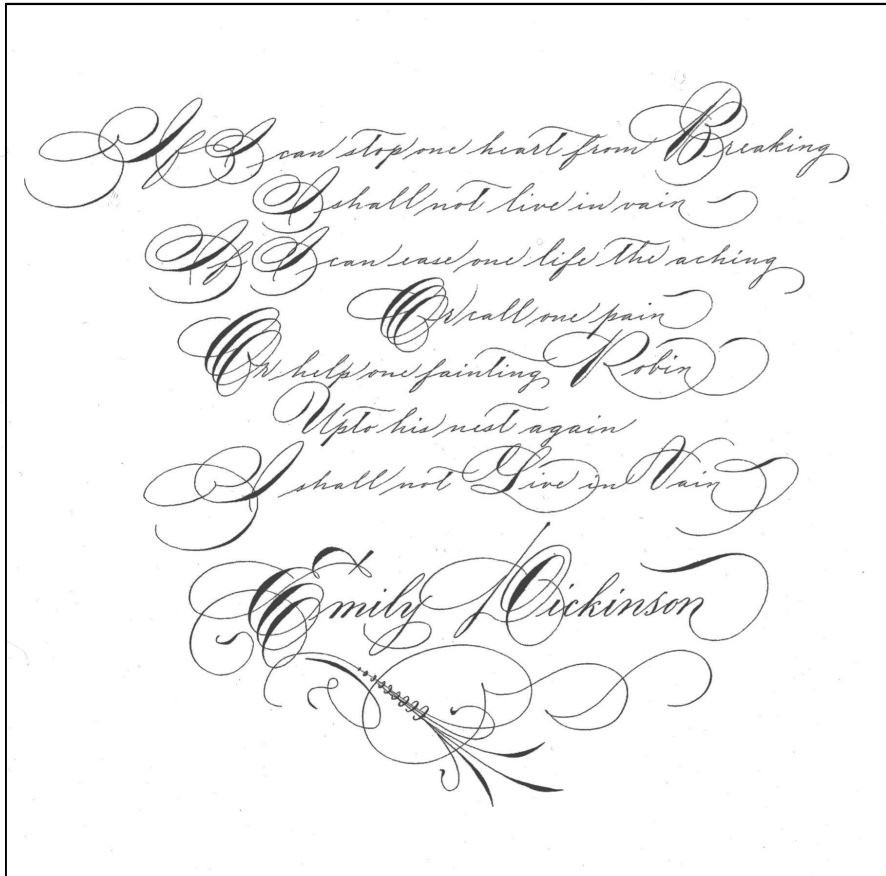 If I can stop one heart from Breaking
I shall not live in vain
If I can ease one life the aching
Or call one pain
Or help one fainting Robin
Upto his nest again
I shall not Live in Vain
Emily Dickinson